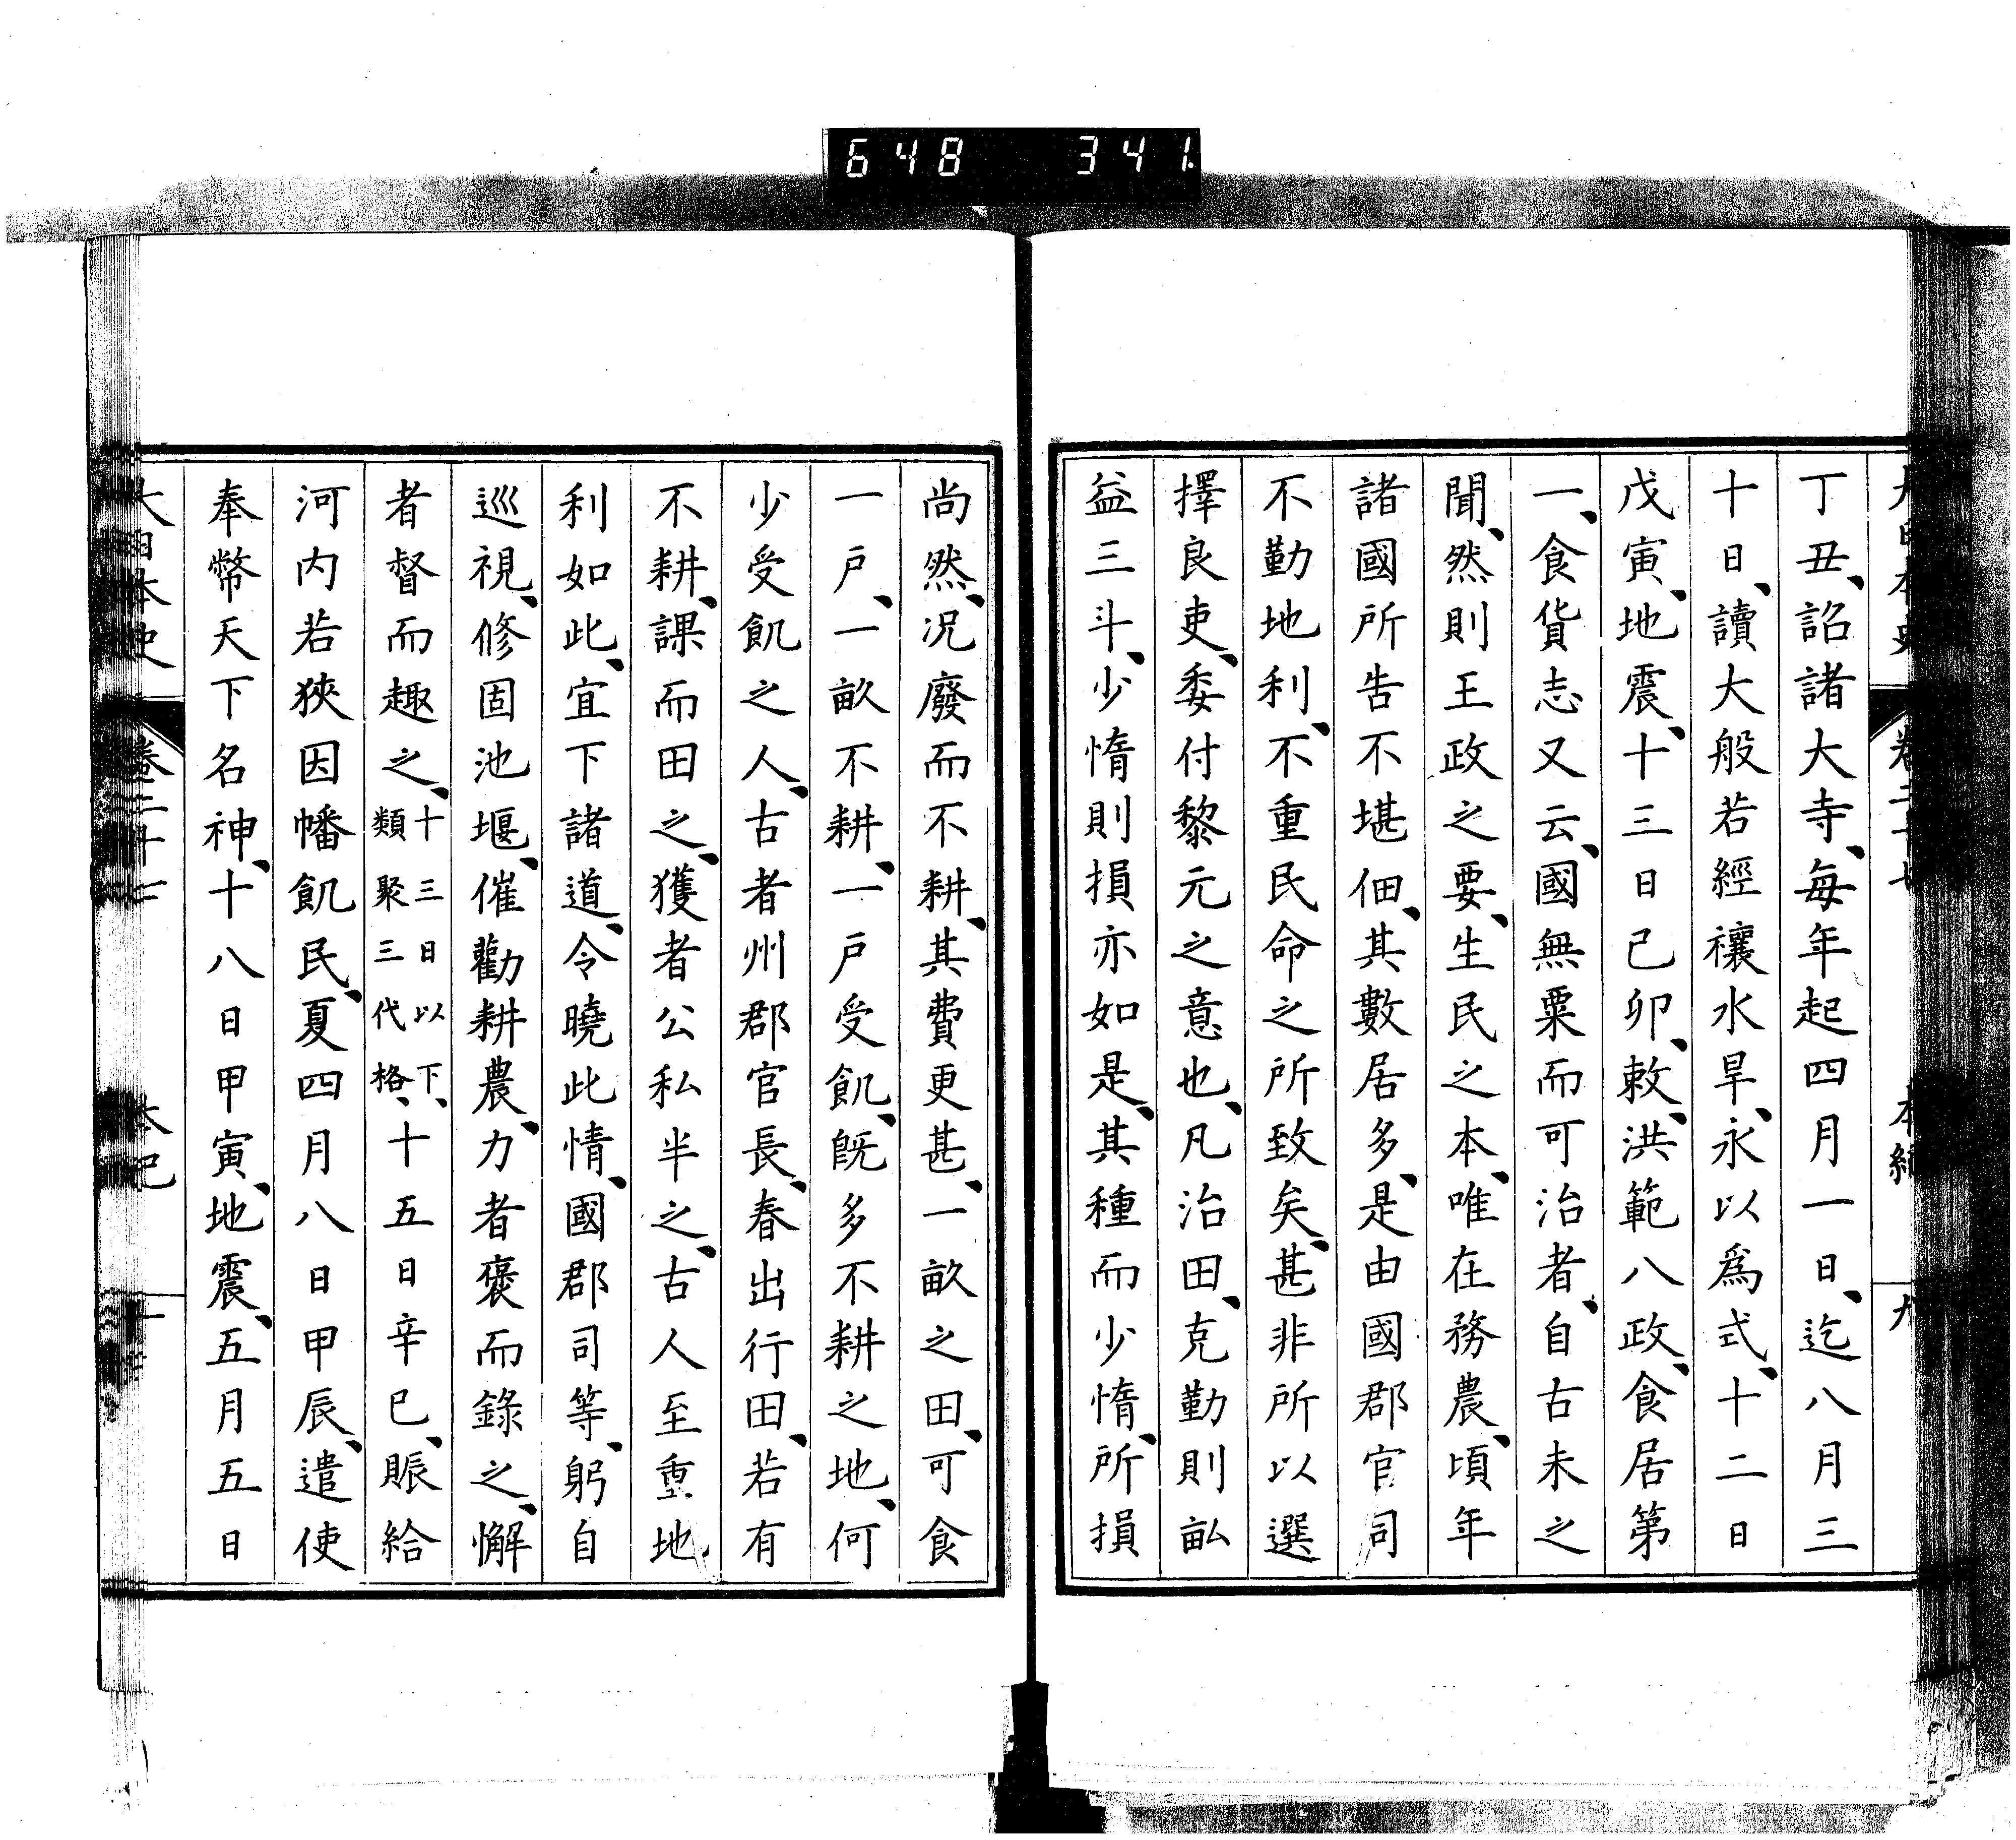 648 341.
大日本史 卷二十七 本紀 九
丁丑、詔諸大寺、每年起四月一日、迄八月三
十日、讀大般若經、禳水旱、永以爲式、十二日
戊寅、地震、十三日己卯、敕、洪範八政、食居第
一、食貨志又云、國無粟而可治者、自古未之
聞、然則王政之要、生民之本、唯在務農、頃年
諸國所告不堪佃、其數居多、是由國郡官司
不勤地利、不重民命之所致矣、甚非所以選
擇良吏、委付黎元之意也、凡治田、克勤則畝
益三斗、少惰則損亦如是、其種而少惰、所損
尚然、况廢而不耕、其費更甚、一畝之田、可食
一戶、一畝不耕、一戶受飢、既多不耕之地、何
少受飢之人、古者州郡官長、春出行田、若有
不耕、課而田之、獲者公私半之、古人至重地
利如此、宜下諸道、令曉此情、國郡司等、躬自
巡視、修固池堰、催勸耕農、力者褒而錄之、懈
者督而趣之、十三日以下、類聚三代格、十五日辛巳、賑給
河内若狹因幡飢民、夏四月八日甲辰、遣使
奉幣天下名神、十八日甲寅、地震、五月五日
大日本史 卷二十七 本紀 十